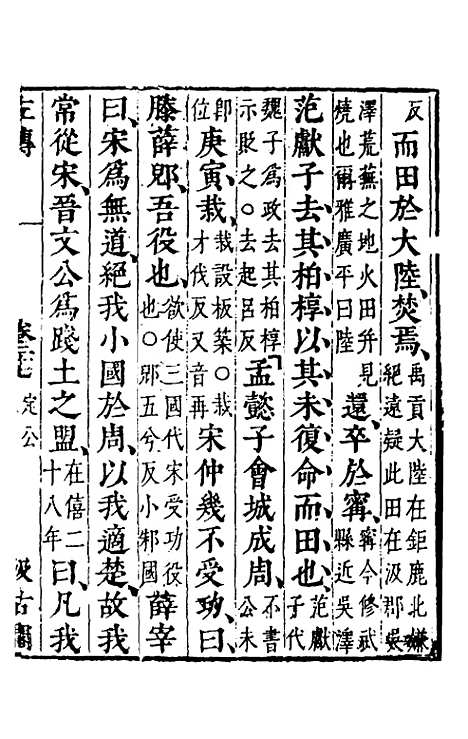 反而田於大陸、焚焉、禹貢大陸在鉅鹿北嫌絕遠疑此田在汲郡吳
澤荒蕪之地火田幷見燒也爾雅廣平曰陸還、卒於甯、甯今修武縣近吳澤
范獻子去其柏椁、以其未復命而田也、范獻子代
魏子爲政去其柏椁示貶之○去起呂反孟懿子會城成周、不書公未
卽位庚寅、栽、栽設板築○栽才伐反又音再宋仲幾不受功、曰、
滕薛郳、吾役也、欲使三國代宋受功役也○郳五兮反小邾國薛宰
曰、宋爲無道、絕我小國於周、以我適楚、故我
常從宋、晉文公爲踐土之盟、在僖二十八年曰、凡我
左傳 定公 汲古閣